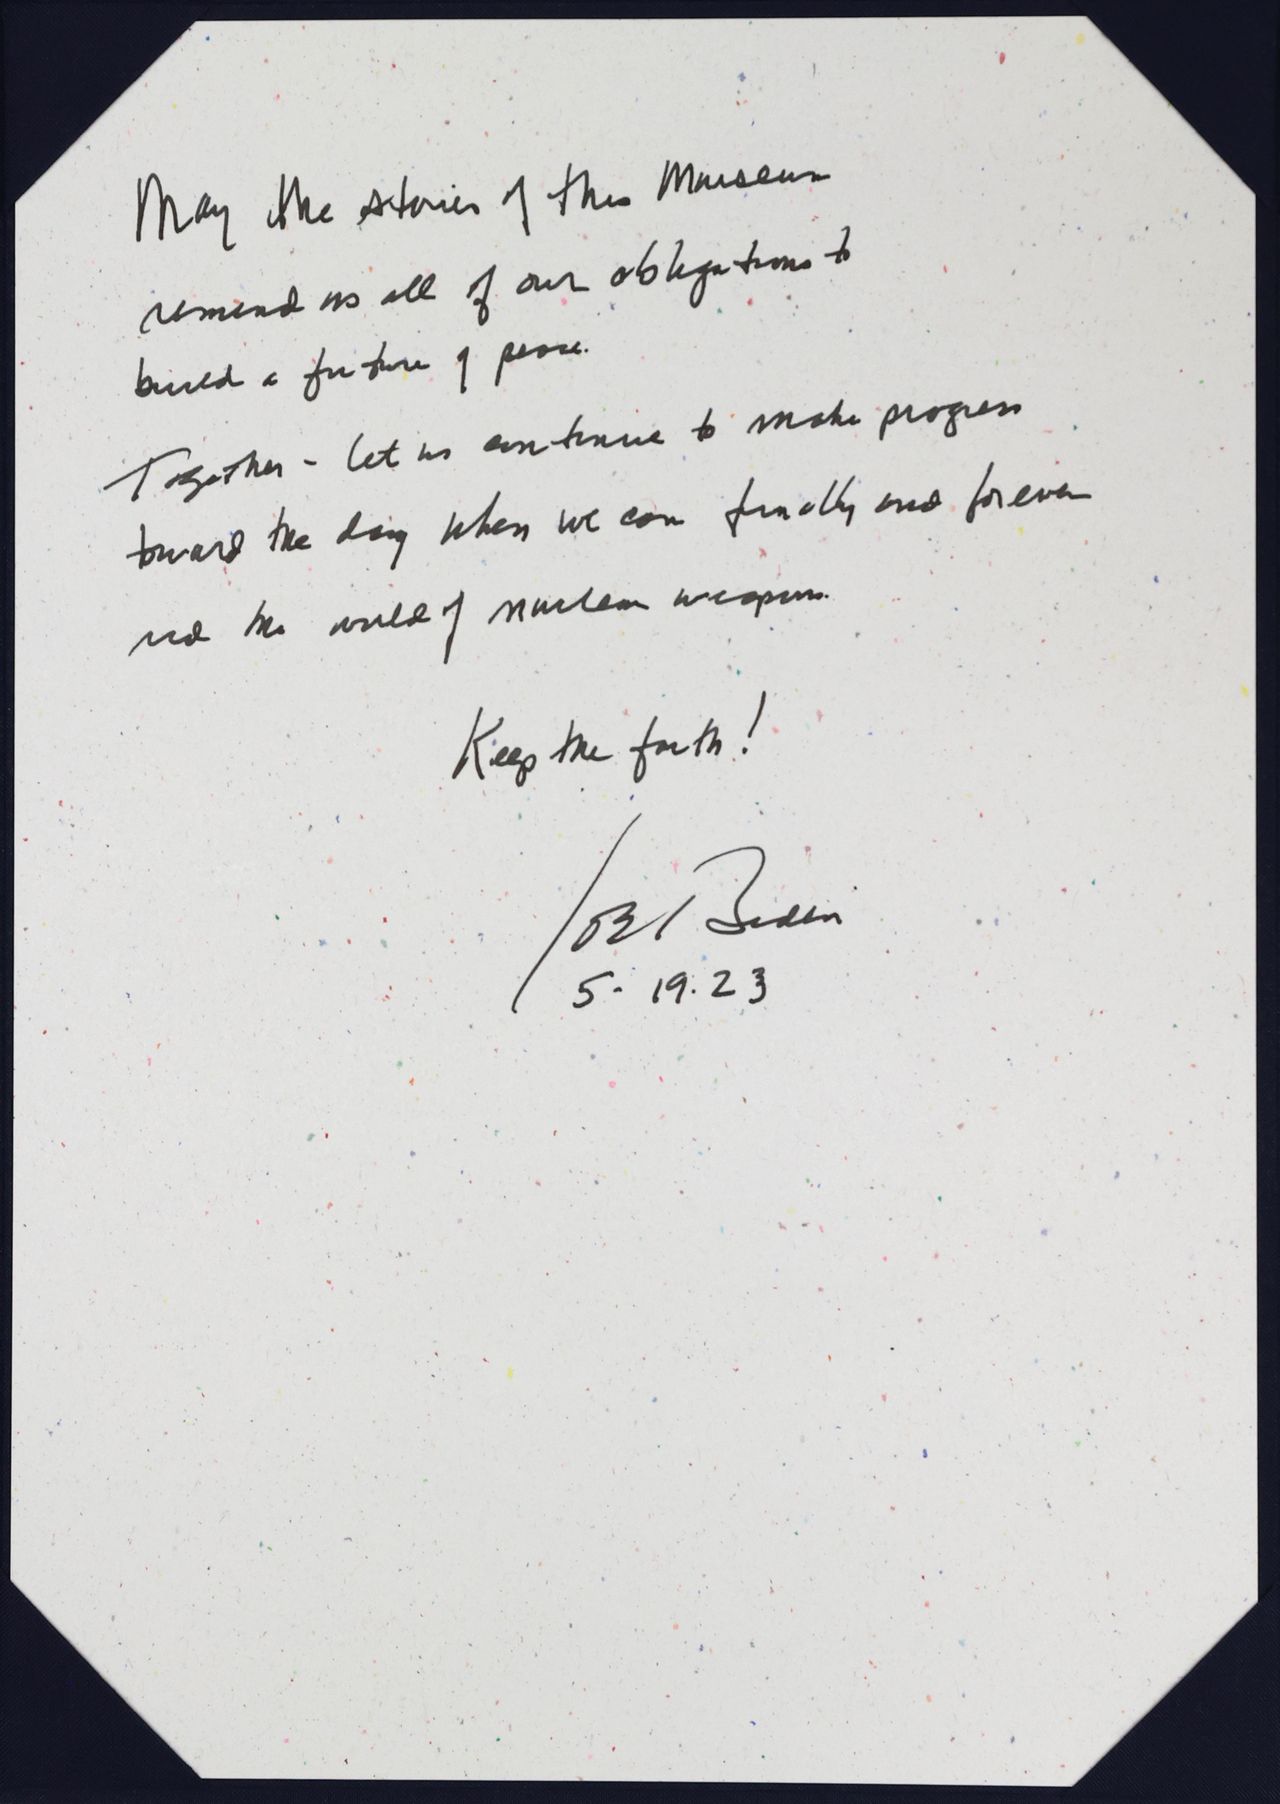 May the stories of this Museum
remind us all of our obligations to
build a future of peace.
Together - let us continue to make progress
toward the day when we can finally and forever
rid the world of nuclear weapons.
Keep the faith!
Joe Biden
5. 19. 23